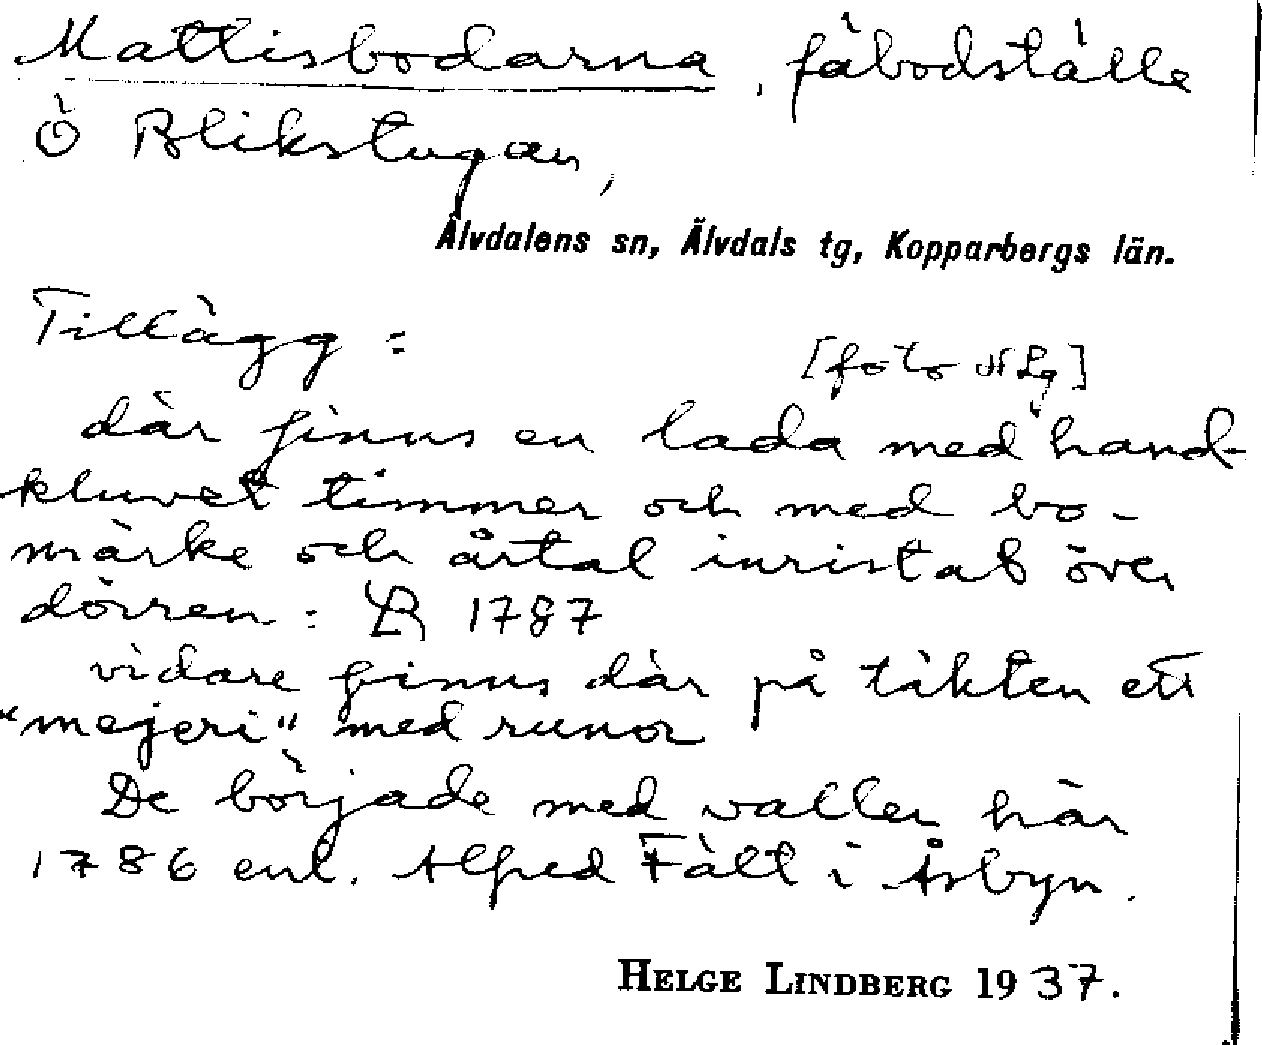 Mattisbodarna, fäbodställe
Ö Blikstugan,
Älvdalens sn, Älvdals tg, Kopparbergs län.
Tillägg:
[foto HLg]
där finns en lada med hand-
kluvet timmer och med bo-
märke och årtal inristat över
dörren: 1787
vidare finns där på täkten ett
"mejeri" med runor
De började med vallen här
1786 enl. Alfred Fält i Åsbyn.
HELGE LINDBERG 1937.